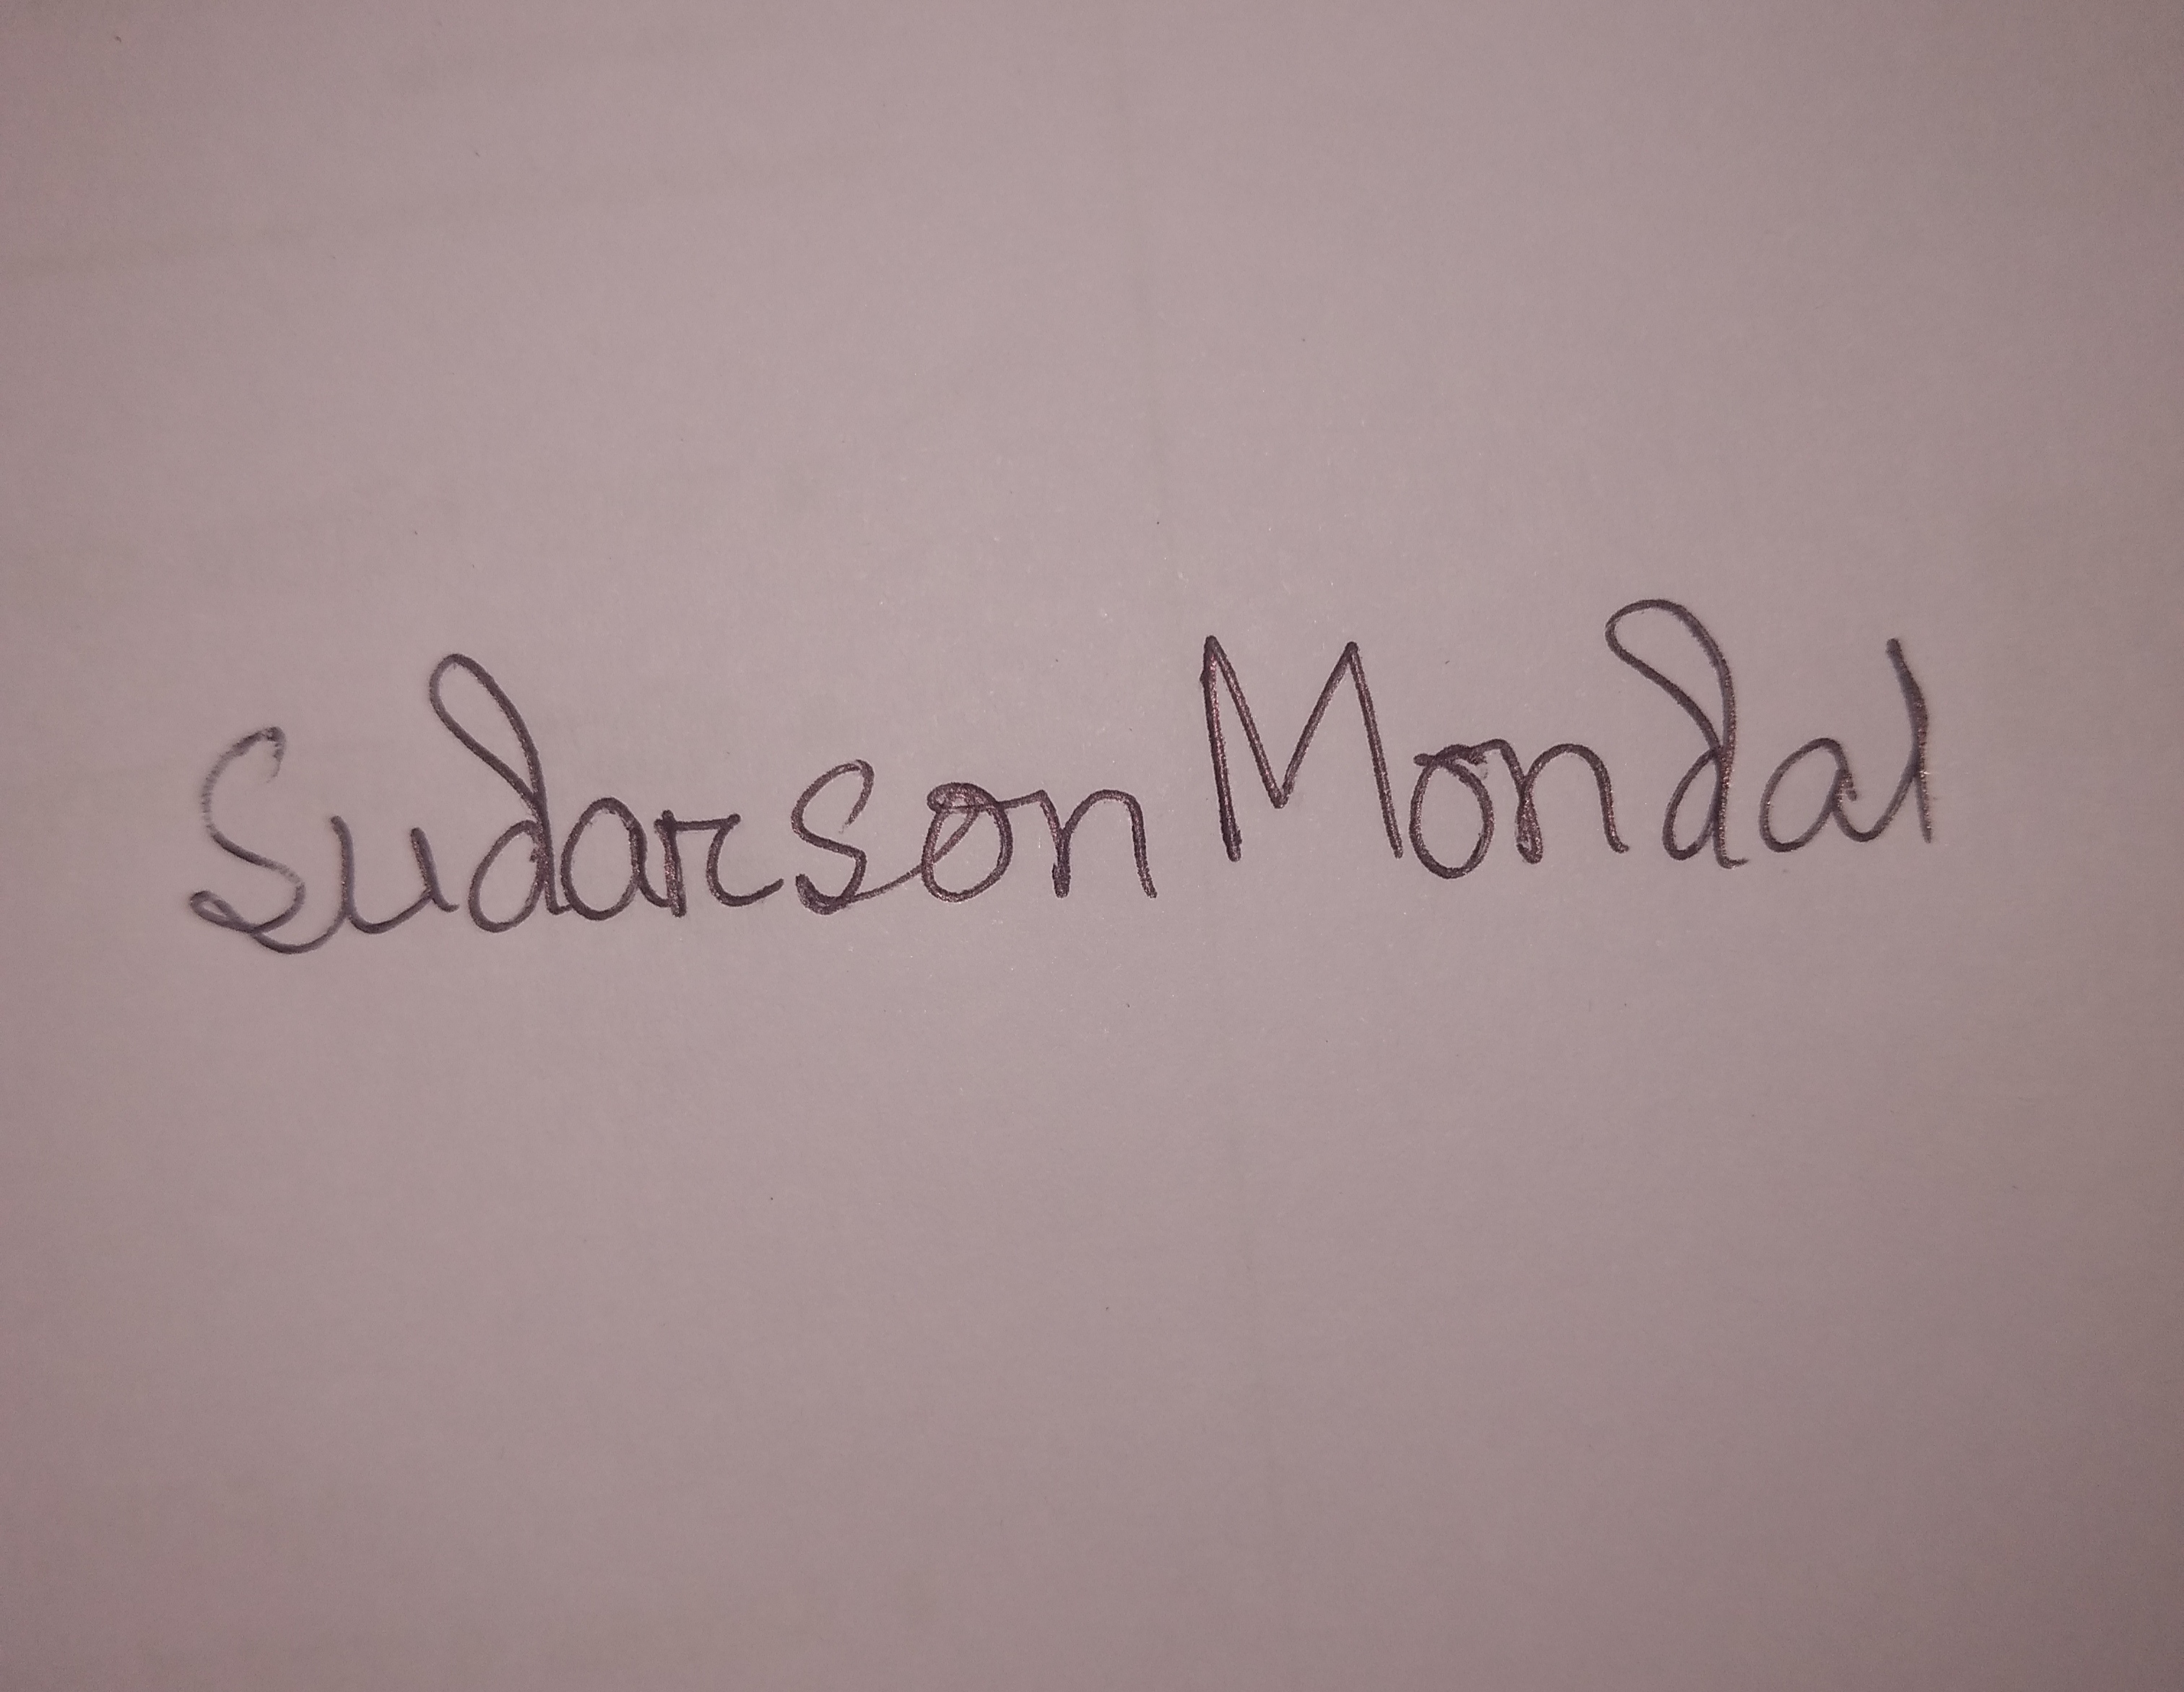 Sudarson Mondal